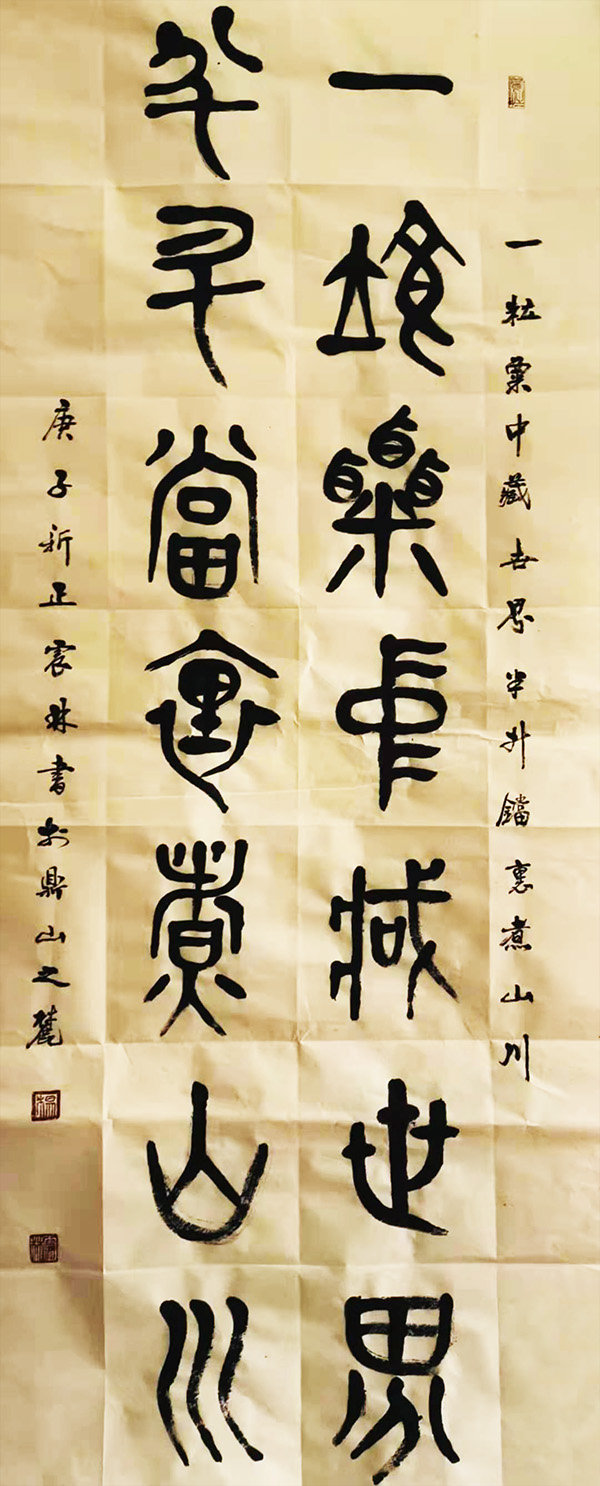 一粒粟中藏世界半升鐺裏煮山川
一粒粟中藏世界
半升當裏煮山川
庚子新正宸林書於鼎山之麓